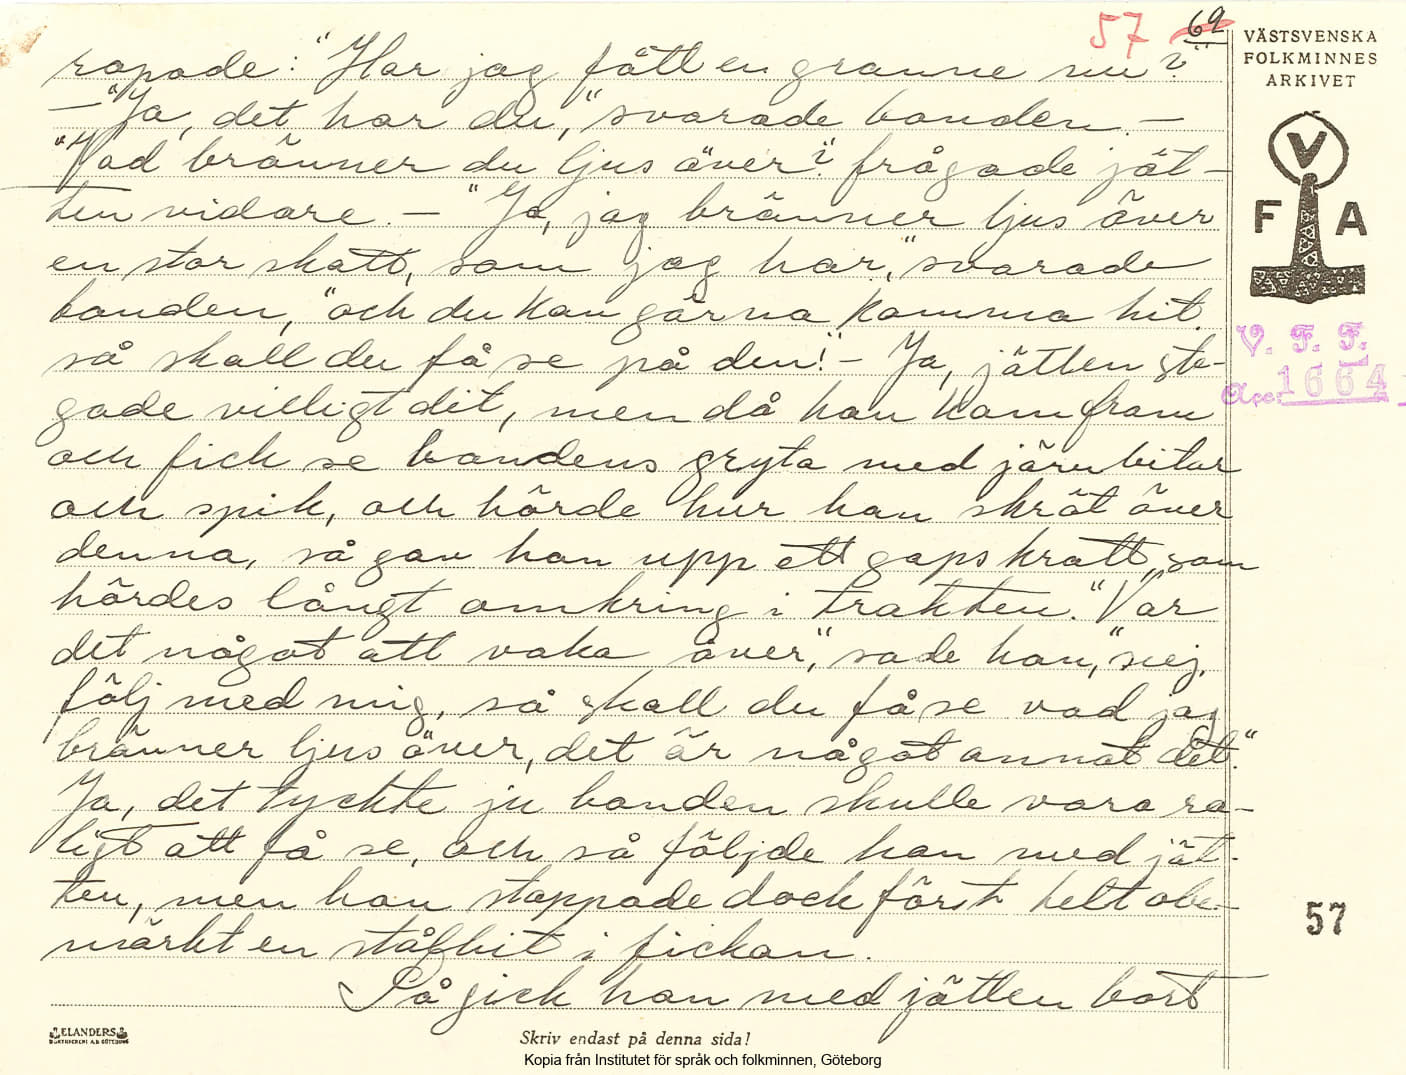 57 69
VÄSTSVENSKA
FOLKMINNES
ARKIVET
V
F A
V. F. F.
Acc. 1664
ropade: "Har jag fått en granne nu?"
— "Ja, det har du," svarade bonden. —
"Vad bränner du ljus över"? frågade jät-
ten vidare. — "Ja, jag bränner ljus över
en stor skatt, som jag har," svarade
bonden, "och du kan gärna komma hit
så skall du få se på den!" — Ja, jätten ste-
gade villigt dit, men då han kom fram
och fick se bondens gryta med järnbitar
och spik, och hörde hur han skröt över
denna, så gav han upp ett gapskratt, som
hördes långt omkring i trakten. "Var
det något att vaka över," sade han, "nej,
följ med mig, så skall du få se vad jag
bränner ljus över, det är något annat det."
Ja, det tyckte ju bonden skulle vara ro-
ligt att få se, och så följde han med jät-
ten, men han stoppade dock först helt obe-
märkt en stålbit i fickan.
Så gick han med jätten bort
57
ELANDERS
BOKTRYCKERI A.B. GÖTEBORG
Skriv endast på denna sida!
Kopia från Institutet för språk och folkminnen, Göteborg